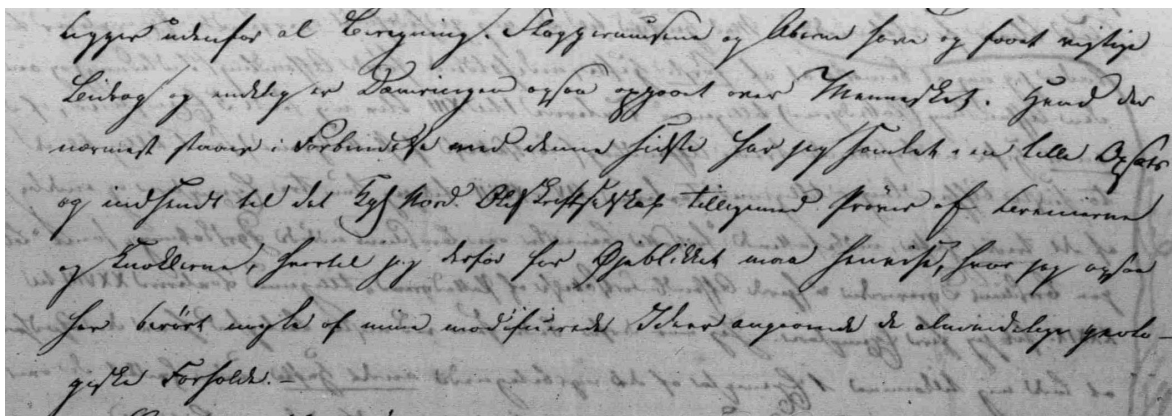 ligger udenfor al Beregning. Flaggermusene og Aberne have og faaet vigtige
Bidrag og endelig er Dæmringen ogsaa opgaaet over Mennesket. Hvad der
nærmest staaer i Forbindelse med denne sidste har jeg samlet i en lille Opsats
og indsendt til det Kgl. Nord. Oldskriftselskab tilligemed Prøver af Cranierne
og Knoklerne, hvortil jeg derfor for Øjeblikket maa henvise, hvor jeg ogsaa
har berørt nogle af mine modificerede Ideer angaaende de almindelige geolo-
giske Forholde.-